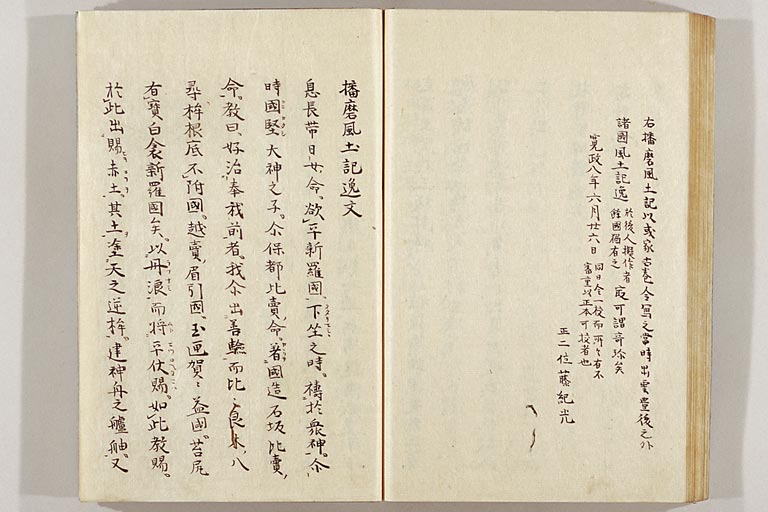 右播磨風土記以或家古巻令写之当時出雲豊後之外
諸国風土記逸 於後人擬作者
余国偶有之 寔可謂奇珍矣
寛政八年六月廿六日 同日令一校而所々有不
審重以正本可校者也
正二位藤紀光
播磨風土記逸文
息長帯日女命。欲平新羅國。下坐之時。禱於衆神。尒
時國堅大神之子。尒保都比賣命。著國造石坂比賣
命。教曰。好治奉我前者。我尒出善驗。而比々良木八
尋桙根底不附國。越賣眉引國。玉匣賀々益國。苔尻
有寶白衾新羅國矣。以丹浪而将平伏賜。如此教賜。
於此出賜赤土。其土塗天之逆桙。建神舟之艫舳。又